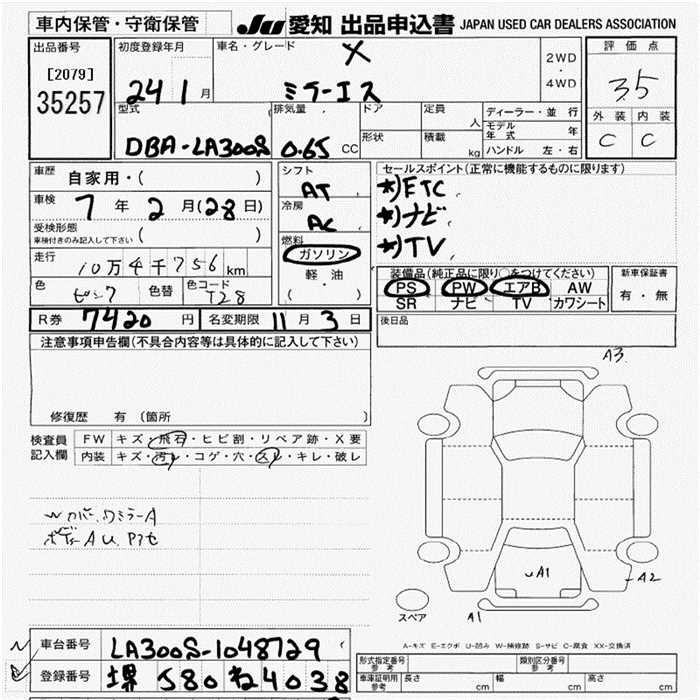 車内保管・守衛保管
JU 愛知 出品申込書 JAPAN USED CAR DEALERS ASSOCIATION
出品番号
[2079]
35257
初度登録年月
24 1 月
車名・グレード
X
ミラーイース
2WD
・
4WD
評価点
3.5
外装 内装
C C
型式
DBA-LA300S
排気量
0.65 CC
ドア
形状
定員
人
積載
kg
ディーラー・並行
モデル年式 年
ハンドル 左・右
車歴
自家用・( )
車検
7 年 2 月(28日)
受検形態
車検付きのみ記入して下さい ( )
走行
10万4千756 km
色
ピンク
色替
色コード
T28
シフト
AT
冷房
AC
燃料
ガソリン
軽油
( )
セールスポイント(正常に機能するものに限ります)
ETC
ナビ
TV
装備品(純正品に限り○をつけてください)
PS PW エアB AW
SR ナビ TV カワシート
新車保証書
有・無
R券 7420 円 名変期限 11 月 3 日
後日品
注意事項申告欄(不具合内容等は具体的に記入して下さい)
修復歴 有(箇所
検査員
記入欄
FW キズ・飛石・ヒビ割・リペア跡・X要
内装 キズ・汚レ・コゲ・穴・スレ・キレ・破レ
A3
A1
A2
A1
スペア
A-キズ E-エクボ U-凹み W-補修跡 S-サビ C-腐食 XX-交換済
車台番号 LA300S-1048729
登録番号 堺 580 ね 4038
形式指定番号
参考
類別区分番号
参考
車庫証明用
参考
長さ cm 幅 cm 高さ cm